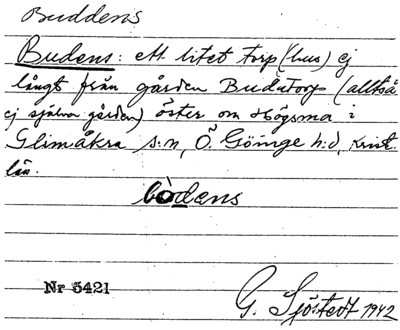 Buddens
Budens: ett litet torp (hus) ej
långt från gården Budatorp (alltså
ej själva gården) öster om Högsma i
Glimåkra s:n, Ö. Göinge h:d, Krist.
län.
bòdens
Nr 5421
G. Sjöstedt 1942